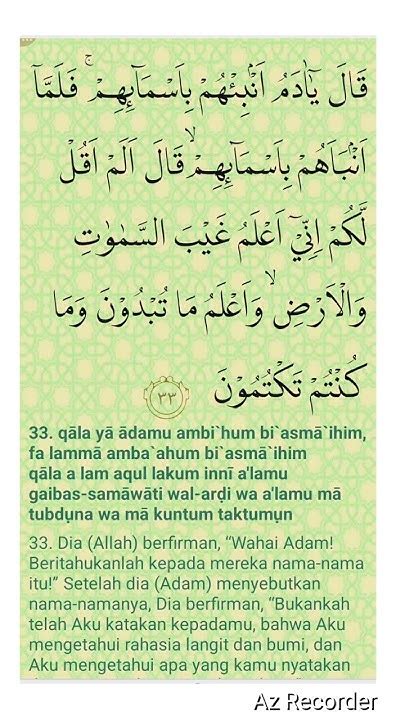 قَالَ يٰٓاٰدَمُ اَنْۢبِئْهُمْ بِاَسْمَاۤىِٕهِمْ ۚ فَلَمَّآ
اَنْۢبَاَهُمْ بِاَسْمَاۤىِٕهِمْۙ قَالَ اَلَمْ اَقُلْ
لَّكُمْ اِنِّيْٓ اَعْلَمُ غَيْبَ السَّمٰوٰتِ
وَالْاَرْضِۙ وَاَعْلَمُ مَا تُبْدُوْنَ وَمَا
كُنْتُمْ تَكْتُمُوْنَ ٣٣
33. qāla yā ādamu ambi`hum bi`asmā`ihim,
fa lammā amba`ahum bi`asmā`ihim
qāla a lam aqul lakum innī a'lamu
gaibas-samāwāti wal-arḍi wa a'lamu mā
tubdụna wa mā kuntum taktumụn
33. Dia (Allah) berfirman, “Wahai Adam!
Beritahukanlah kepada mereka nama-nama
itu!” Setelah dia (Adam) menyebutkan
nama-namanya, Dia berfirman, “Bukankah
telah Aku katakan kepadamu, bahwa Aku
mengetahui rahasia langit dan bumi, dan
Aku mengetahui apa yang kamu nyatakan
Az Recorder